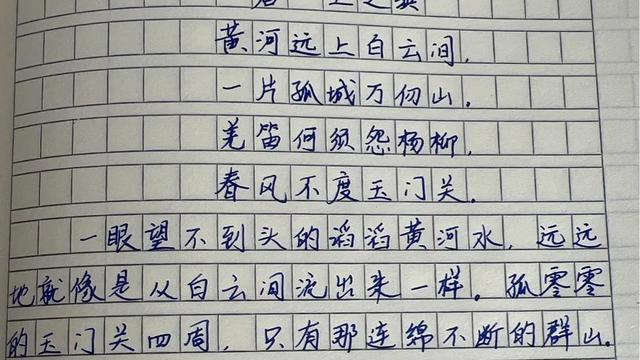 黄河远上白云间，
一片孤城万仞山。
羌笛何须怨杨柳，
春风不度玉门关。
一眼望不到头的滔滔黄河水，远远
地就像是从白云间流出来一样。孤零零
的玉门关四周，只有那连绵不断的群山。